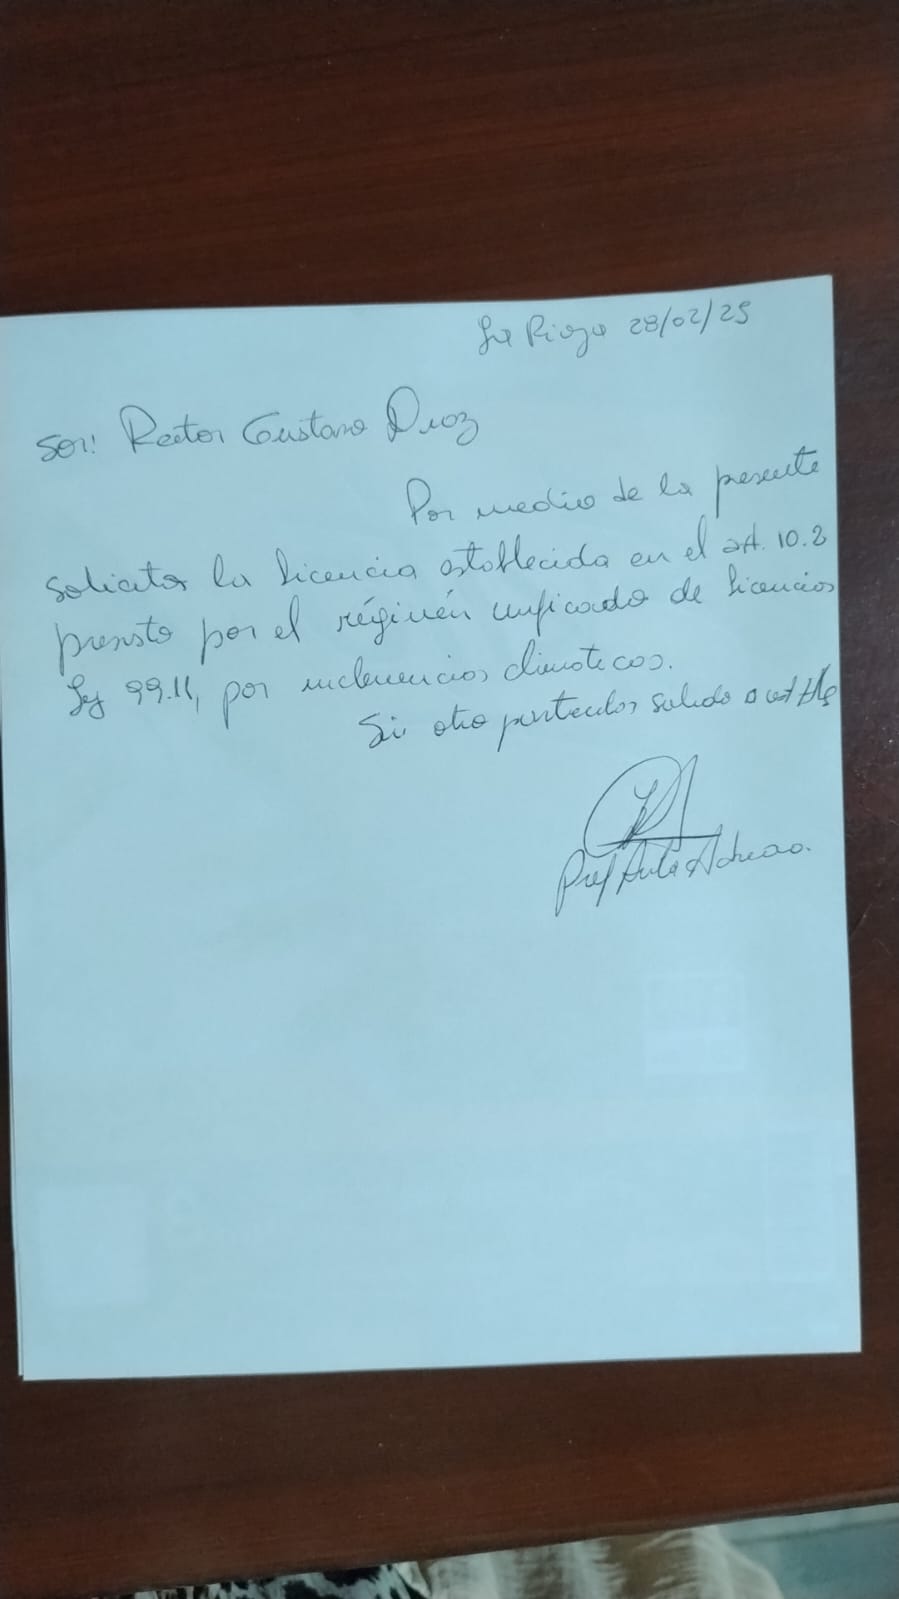 La Rioja 28/02/25
Sor: Rector Gustavo Diaz
Por medio de la presente
solicito la licencia establecida en el art. 10.2
previsto por el régimén unficado de licencias
Ley 99.11, por inclemencias climaticas.
Sin otro particular saludo a
Prof